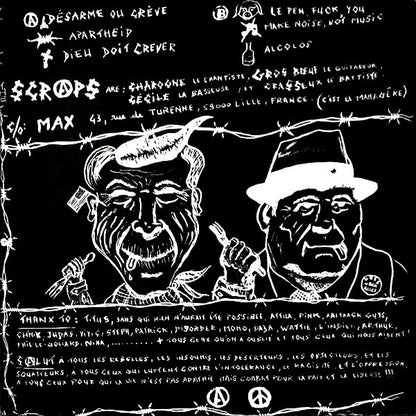 A DÉSARME OU CRÈVE
APARTHEID
DIEU DOIT CREVER
B LE PEN FUCK YOU
MAKE NOISE, NOT MUSIC
ALCOLOS
SCRAPS ARE: CHAROGNE LE CHANTISTE, GROS BŒUF LE GUITAREUR,
CÉCILE LA BASSEUSE, ET CRASSEUX LE BATTISTE.
C/O: MAX 43, rue de TURENNE, 59000 LILLE, FRANCE. (C'EST LE MANAGÈRE)
THANX TO: TITUS, SANS QUI RIEN N'AURAIT ÉTÉ POSSIBLE, ATTILA, PINK,
CHMIX, JUDAS, STEPH, PATRICK, MOMO, BABA, WATTIE, ARTHUR,
NINA, ........ + TOUS CEUX QU'ON A OUBLIÉ ET TOUS CEUX QUI NOUS AIDENT!
SALUT À TOUS LES REBELLES, LES INSOUMIS, LES DÉSERTEURS, LES OBJECTEURS, ET LES
SQUATTEURS, À TOUS CEUX QUI LUTTENT CONTRE L'INTOLÉRANCE, LE RACISME, ET L'OPPRESSION,
À TOUS CEUX POUR QUI LA VIE N'EST PAS APATHIE MAIS COMBAT POUR LA PAIX ET LA LIBERTÉ!!!